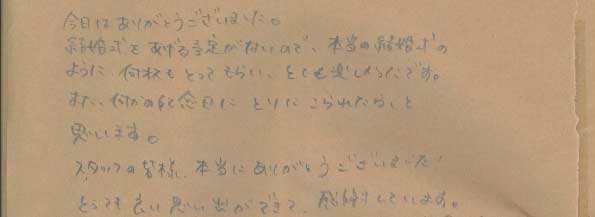 今日はありがとうございました。
結婚式をあげる予定がないので、本当の結婚式の
ように何枚もとってもらい、とても楽しかったです。
また、何かの記念日に とりにこられたら、と
思います。
スタッフの皆様、本当にありがとうございました!
とっても良い思い出ができて、感謝しています。